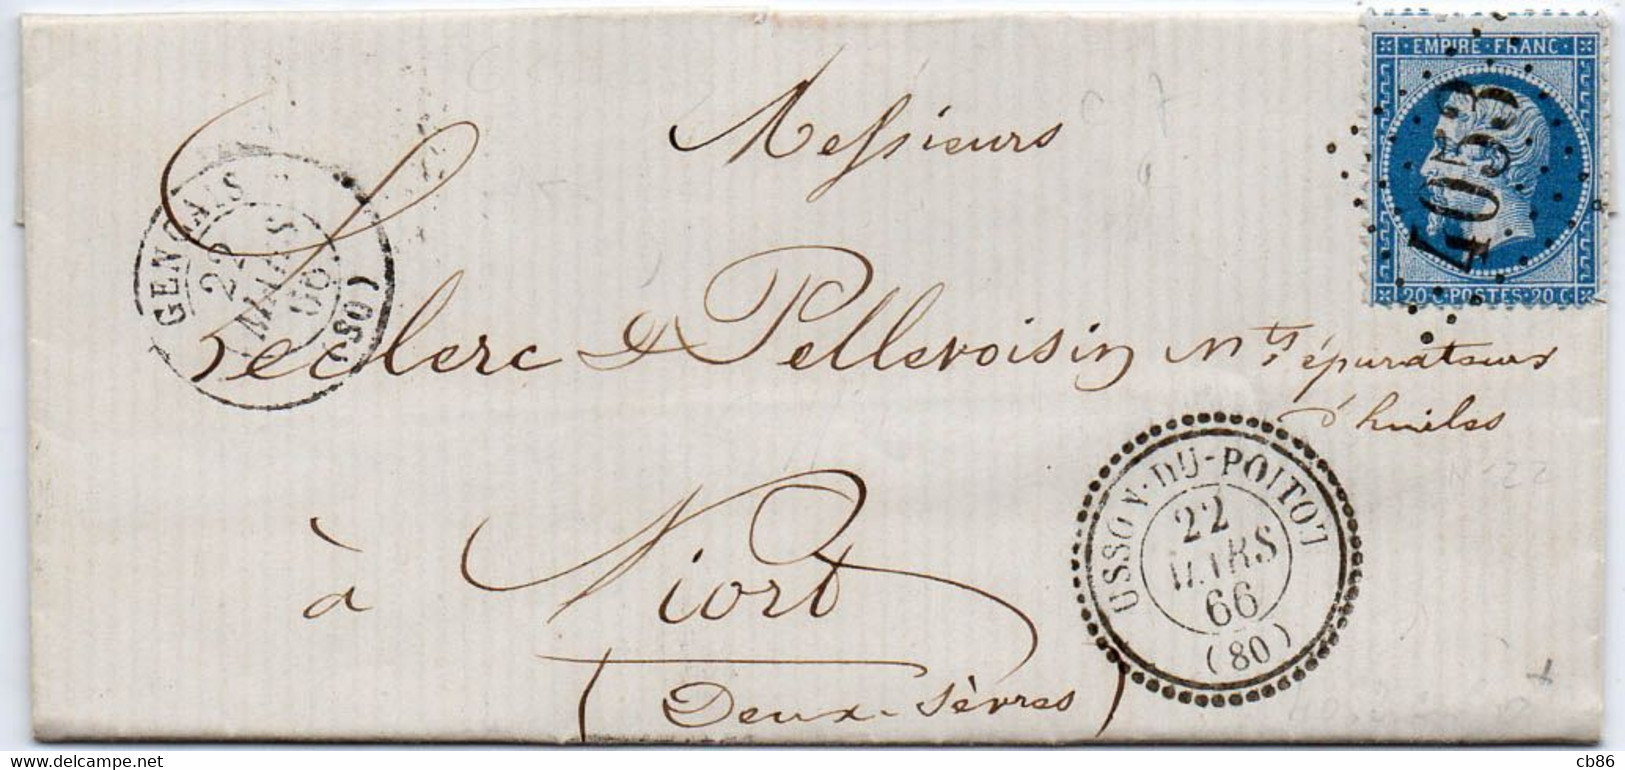 EMPIRE · FRANC
4053
20 C · POSTES · 20 C
Messieurs
GENÇAIS
22
MARS
66
(80)
Leclerc & Pellevoisin Mts épurateurs
d'huiles
USSON-DU-POITOU
22
MARS
66
(80)
à Niort
(Deux-Sèvres)
cb86